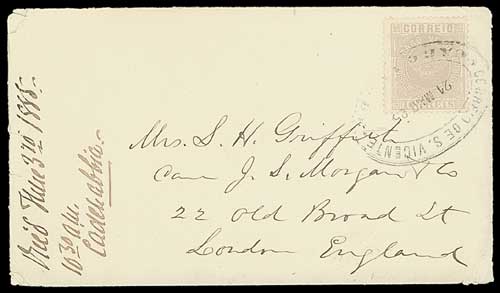 CORREIO
CORREIO DE S. VICENTE
Mrs. S. H. Griffith
Care J. S. Morgan & Co
22 Old Broad St
London England
Rec'd June 3rd 1885.
10 30 a.m.
Cadenabbia.